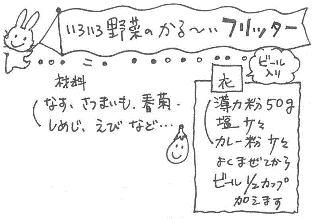 いろいろ野菜のかる〜いフリッター
材料
なす、さつまいも、春菊、
しめじ、えび など…
ビール
入り
衣
薄力粉 50g
塩 少々
カレー粉 少々
よくまぜてから
ビール 1/2カップ
加えます